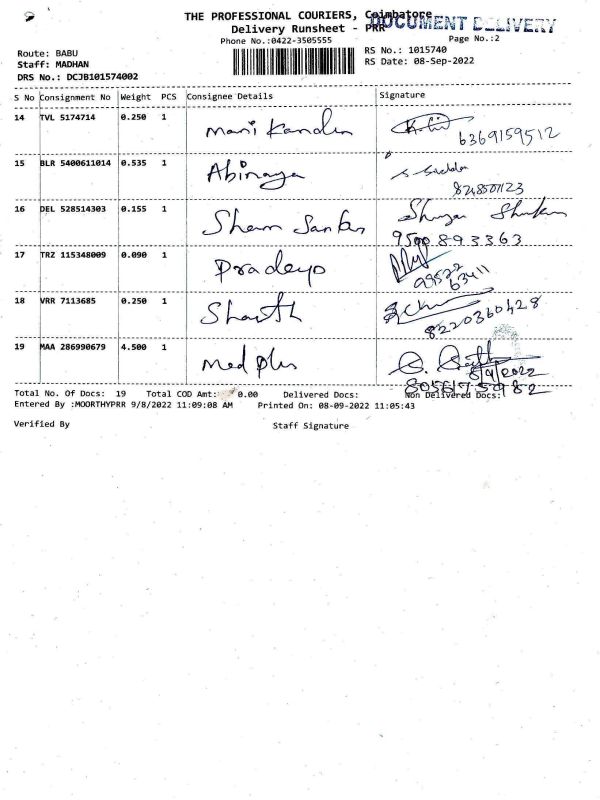 THE PROFESSIONAL COURIERS, Coimbatore
DOCUMENT DELIVERY
Delivery Runsheet - PRR
Phone No.:0422-3505555
Page No.:2
Route: BABU
RS No.: 1015740
Staff: MADHAN
RS Date: 08-Sep-2022
DRS No.: DCJB101574002
S No Consignment No Weight PCS Consignee Details Signature
14 TVL 5174714 0.250 1 Mani Kandan
6369159512
15 BLR 5400611014 0.535 1 Abinaya
16 DEL 528514303 0.155 1 Sham Sankar
9500893363
17 TRZ 115348009 0.090 1 Pradeep
99522
63411
18 VRR 7113685 0.250 1 Sharath
8220360428
19 MAA 286990679 4.500 1 Med plus
8/9/2022
8056175982
Total No. Of Docs: 19 Total COD Amt: 0.00 Delivered Docs: Non Delivered Docs:
Entered By :MOORTHYPRR 9/8/2022 11:09:08 AM Printed On: 08-09-2022 11:05:43
Verified By Staff Signature